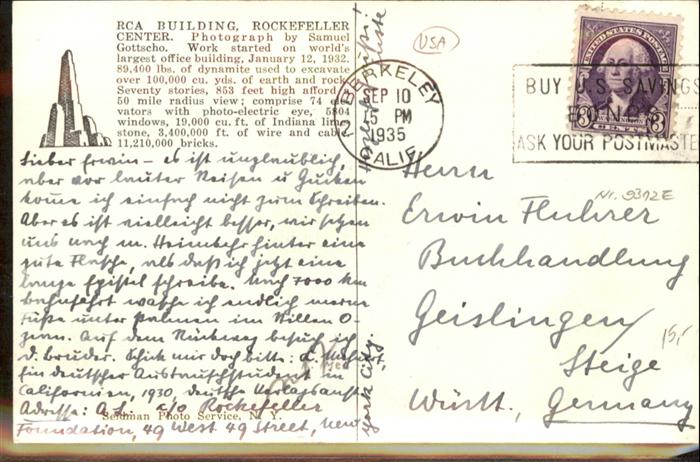 RCA BUILDING, ROCKEFELLER
CENTER. Photograph by Samuel
Gottscho. Work started on world's
largest office building, January 12, 1932.
89,400 lbs. of dynamite used to excavate
over 100,000 cu. yds. of earth and rock
Seventy stories, 853 feet high afford
50 mile radius view; comprise 74 ele
vators with photo-electric eye, 5804
windows, 19,000 cu. ft. of Indiana lime
stone, 3,400,000 ft. of wire and cable
11,210,000 bricks.
USA
BERKELEY
SEP 10
5 PM
1935
CALIF.
UNITED STATES POSTAGE
3 CENTS 3
BUY U.S. SAVINGS
BONDS
ASK YOUR POSTMASTE
Lieber Erwin – es ist unglaublich,
aber vor lauter Reisen u Gucken
komme ich einfach nicht zum Schreiben.
Aber es ist vielleicht besser, wir setzen
uns nach m. Heimkehr hinter eine
gute Flasche, als daß ich jetzt eine
lange Epistel schreibe. Nach 7000 km
Bahnfahrt wasche ich endlich meine
Füße unter Palmen im Stillen O-
zean. Auf dem Rückweg besuch ich
d. Bruder. Schick mir doch bitte:
Ein deutscher Austauschstudent in
Californien, 1930, deutsche Verlagsanst.
Adresse: c/o Rockefeller
Foundation, 49 West 49 Street, New
York City.
Seidman Photo Service, N. Y.
Herrn
Erwin Fluhrer
Buchhandlung
Geislingen/
Steige
Württ., Germany
Nr. 9312E
15,-